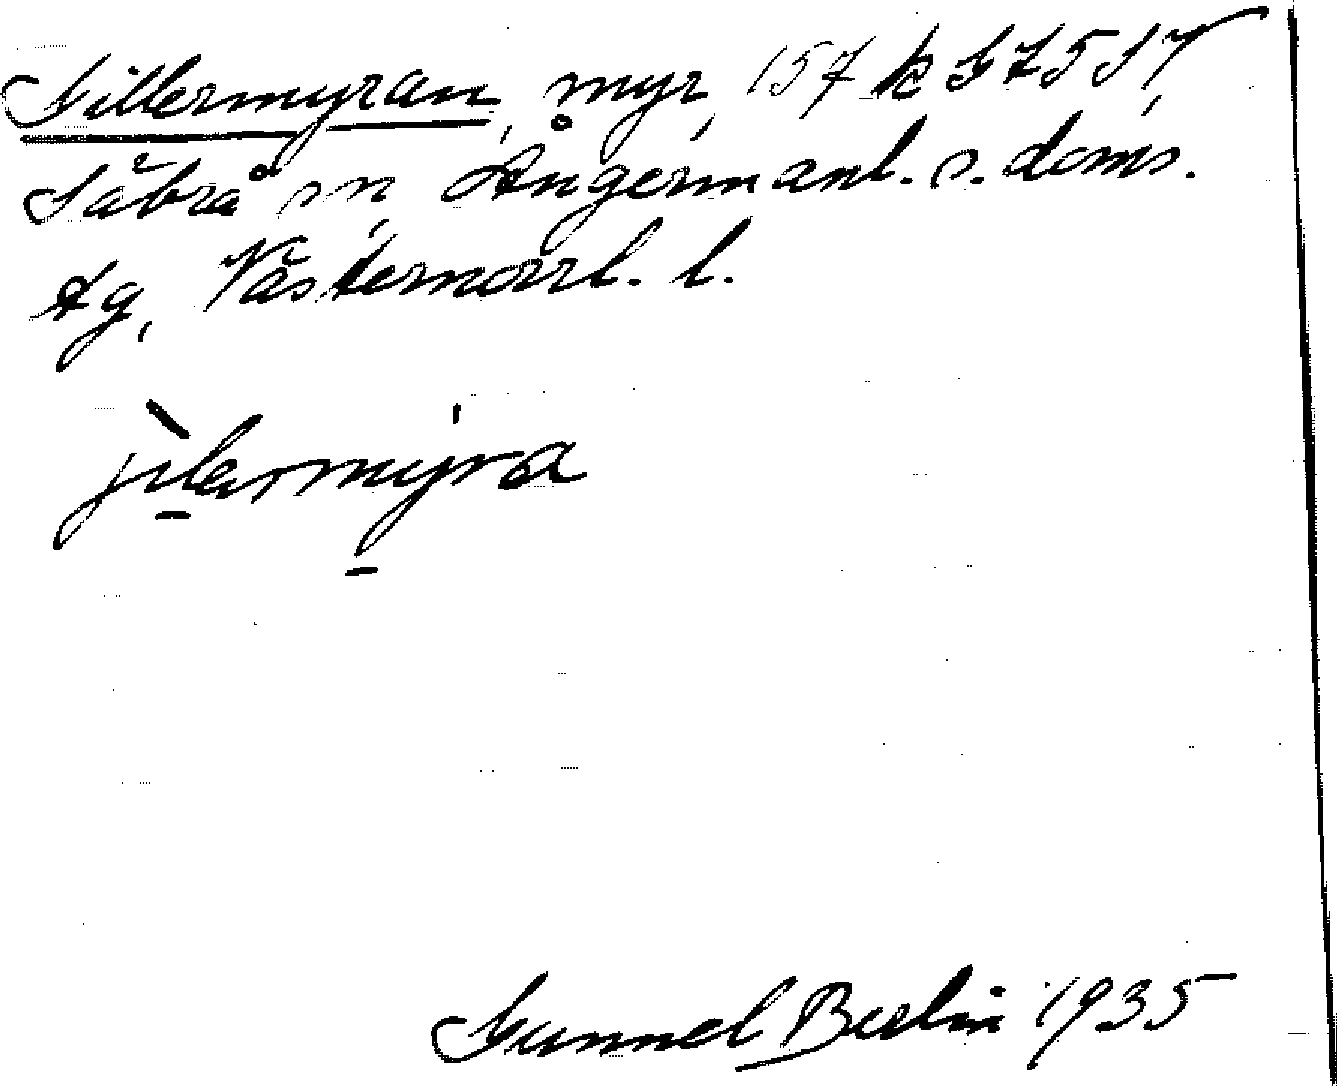 Gillermyran, myr, 157 k G7517,
Säbrå sn, Ångermanl. s. doms.
tg, Västernorrl. l.
jìlermýra
Gunnel Berlin 1935